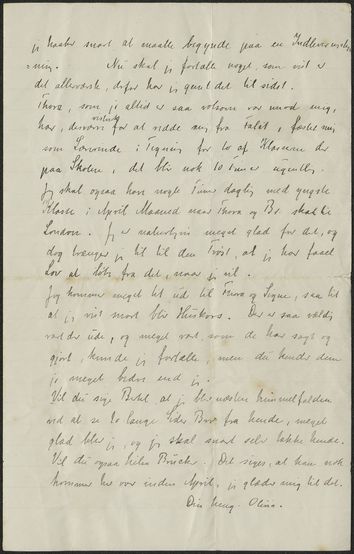 jeg haaber snart at maatte begynde paa en
ning. Nu skal jeg fortælle noget, som vist er
det allerværste, derfor har jeg gemt det til sidst.
Thora, som jo altid er saa voldsom var mod mig,
har, desværre virkelig for at redde mig fra Tabet, fæstet mig
som Lærerinde i Tegning for to af Klasserne der
paa Skolen, det blir nok 10 Timer ugentlig.
Jeg skal ogsaa have nogle Timer daglig med yngste
Klasse i April Maaned naar Thora og Br. skal til
London. Jeg er naturligvis meget glad for det, og
dog trænger jeg lit til den Trøst, at jeg har faaet
Lov at løbe fra det, naar jeg vil.
Jeg kommer meget tit ud til Thora og Signe, saa tit
at jeg vist snart blir Huskors. Der er saa vældig
rart der ude, og meget rart, som de har sagt og
gjort, kunde jeg fortælle, men du kender dem
jo meget bedre end jeg.
Vil du sige Bertel, at jeg blev næsten himmelfalden
ved at se to lange Sider Brev fra hende, meget
glad blev jeg, og jeg skal snart selv takke hende.
Vil du ogsaa hilse Brücker. Det siges, at han nok
kommer her over inden April, jeg glæder mig til det.
Din heng. Olina.